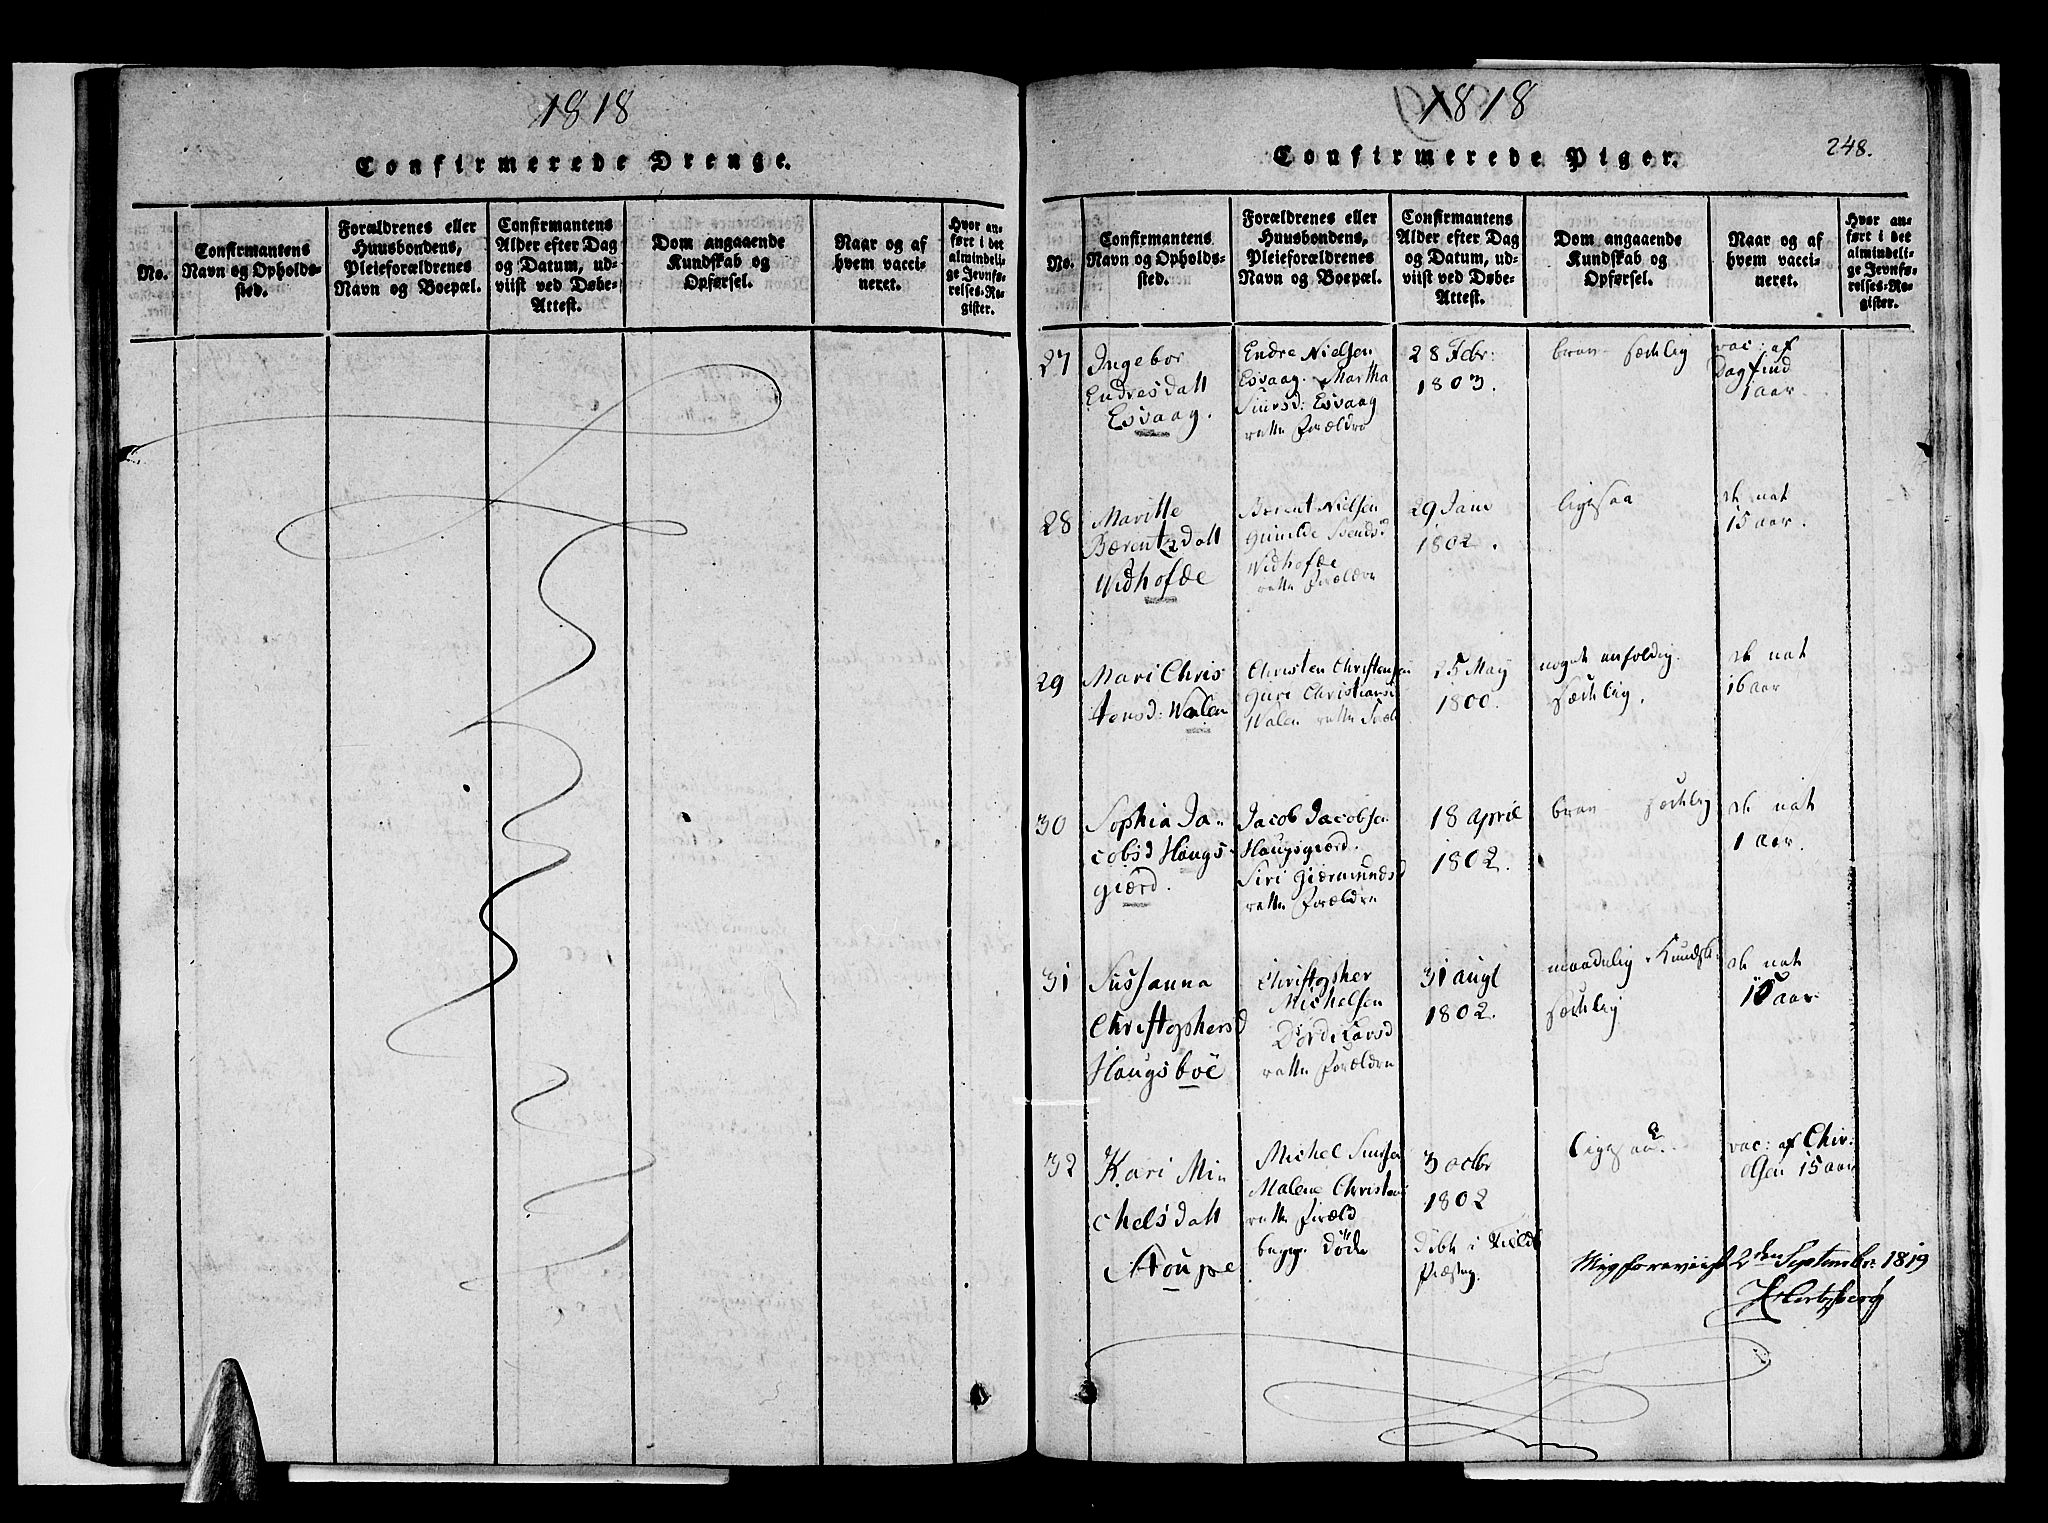 1818
Confirmerede Drenge.
No.
Confirmantens
Navn og Opholds-
sted.
Forældrenes eller
Huusbondens,
Pleieforældrenes
Navn og Boepæl.
Confirmantens
Alder efter Dag
og Datum, ud-
viist ved Døbe-
Attest.
Dom angaaende
Kundskab og
Opførsel.
Naar og af
hvem vacci-
neret.
Hvor an-
ført i det
almindeli-
ge Jevnfø-
relses-Re-
gister.
1818
248.
Confirmerede Piger.
No.
Confirmantens
Navn og Opholds-
sted.
Forældrenes eller
Huusbondens,
Pleieforældrenes
Navn og Boepæl.
Confirmantens
Alder efter Dag
og Datum, ud-
viist ved Døbe-
Attest.
Dom angaaende
Kundskab og
Opførsel.
Naar og af
hvem vacci-
neret.
Hvor an-
ført i det
almindeli-
ge Jevnfø-
relses-Re-
gister.
27
Ingebor
Endresdatt
Esvaag.
Endre Nielsen
Esvaag. Martha
Siursd: Esvaag
rette Forældre
28 Febr:
1803.
brav sædelig
vac: af
Dagfind
1 aar.
28
Maritte
Bærentzdatt
Nidhofde
Berent Nielsen
Gunilde Svends:
Nidhofde
rette Forældre
29 Janr
1802.
ligesaa
de nat
15 aar.
29
Mari Chris
tensd: Walen
Christen Christensen
Guri Christians
Walen rette Foræld
25 May
1800.
noget enfoldig.
sædelig.
de nat
16 aar
30
Sophia Ja-
cobsd Haugs-
giærd.
Jacob Jacobsen
Haugsgiærd.
Siri Giermundsd
rette Forældre
18 April
1802.
brav sædelig
de nat
1 aar.
31
Sussanna
Christophersd
Haugsbøe
Christopher
Michelsen
rette Forældre
31 augt
1802.
maadelig Kundsk.
sædelig
de nat
15 aar.
32
Kari Mi-
chelsdatt
Stoupe
Michel Siursen
Malene Christens
rette Foræld
begge døde
3 octbr
1802
Døbt i
Præsteg.
ligesaa.
vac: af Chir:
Olsen 15 aar
Mig foreviist 2den September 1819
Hertzberg